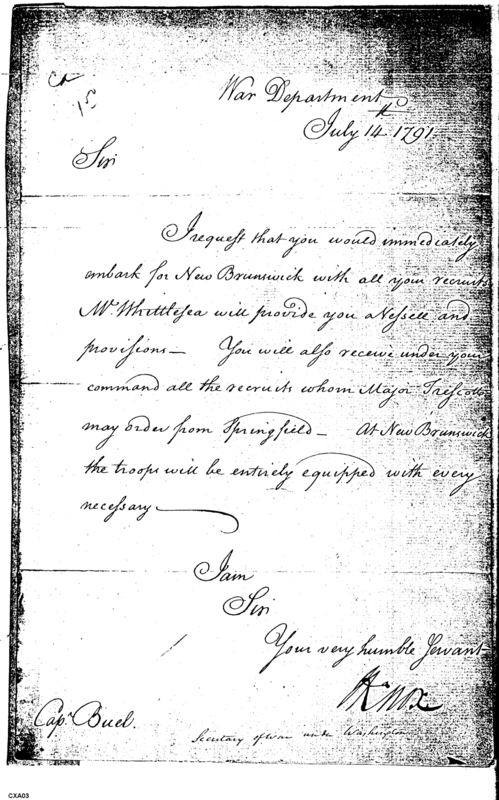 Ca
15
War Department
July 14th 1791.
Sir
I request that you would immediately
embark for New Brunswick with all your recruits
Mr Whittlesea will provide you a Vessell and
provisions — You will also receive under your
command all the recruits whom Major Trescott
may order from Springfield — At New Brunswick
the troops will be entirely equipped with every
necessary
I am
Sir
Your very humble Servant
HKnox
Capt Buel.
Secretary of war under Washington
CXA03